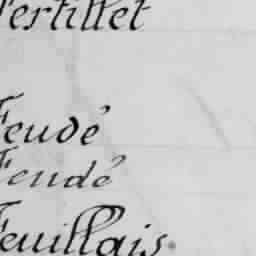 Fertillet
Feudé
Feudé
Feuillais